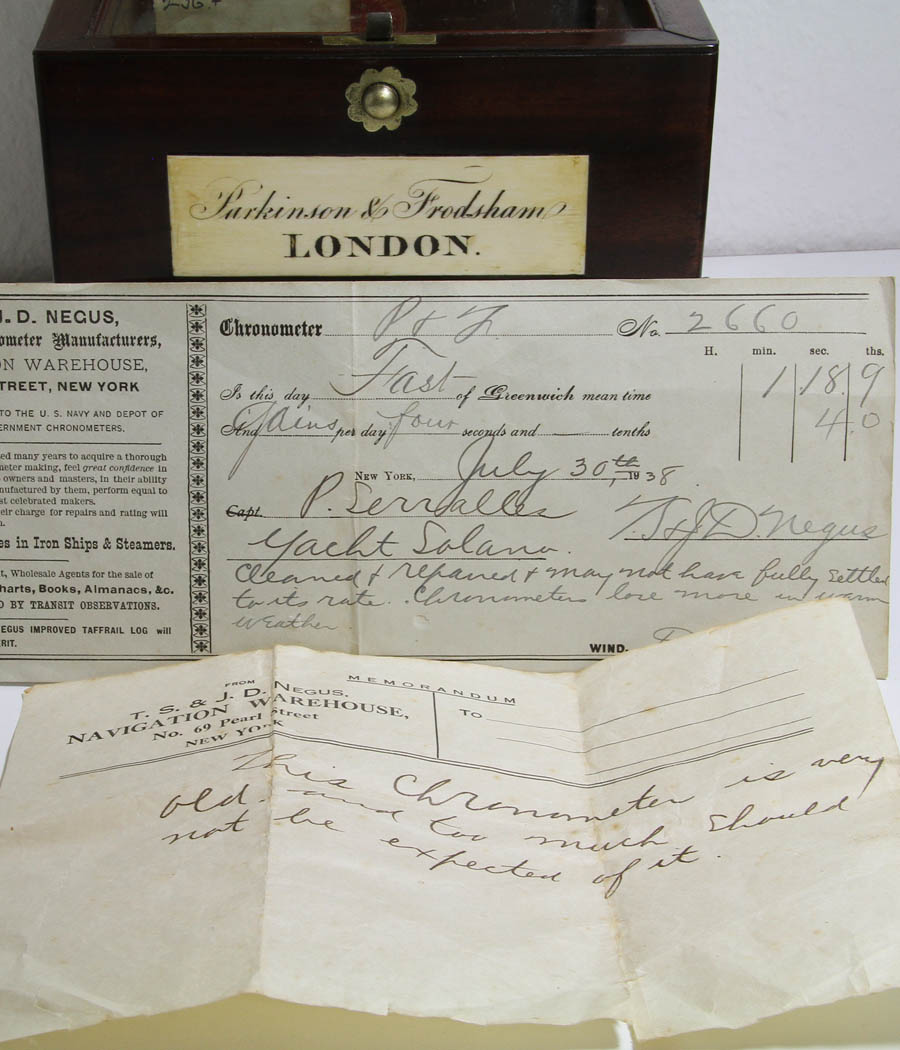 2364
Parkinson & Frodsham
LONDON.
J. D. NEGUS,
ometer Manufacturers,
ON WAREHOUSE,
STREET, NEW YORK
TO THE U. S. NAVY AND DEPOT OF
ERNMENT CHRONOMETERS.
ed many years to acquire a thorough
meter making, feel great confidence in
owners and masters, in their ability
nufactured by them, perform equal to
st celebrated makers.
eir charge for repairs and rating will
n.
es in Iron Ships & Steamers.
t, Wholesale Agents for the sale of
harts, Books, Almanacs, &c.
D BY TRANSIT OBSERVATIONS.
EGUS IMPROVED TAFFRAIL LOG will
RIT.
Chronometer P & F No. 2660
H. min. sec. ths.
Is this day Fast of Greenwich mean time 1 18. 9
And Gains per day four seconds and tenths 4.0
NEW YORK, July 30th, 1938.
Capt. P. Serralles T S & J D Negus
Yacht Solano.
Cleaned & repaired & may not have fully settled
to its rate. Chronometers lose more in warm
weather.
WIND.
FROM
T. S. & J. D. NEGUS.
NAVIGATION WAREHOUSE,
No. 69 Pearl Street
NEW YORK
MEMORANDUM
TO
This Chronometer is very
old and too much should
not be expected of it.